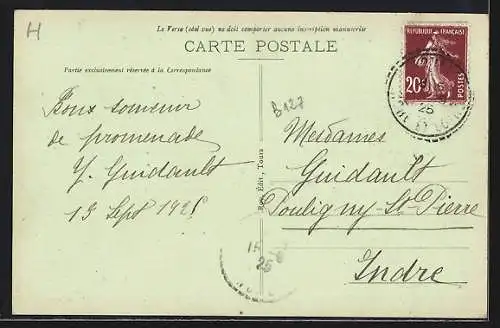 H
Le Verso (côté vue) ne doit comporter aucune inscription manuscrite
CARTE POSTALE
Partie exclusivement réservée à la Correspondance
RÉPUBLIQUE FRANÇAISE
20c
POSTES
B127
Bons souvenir
de promenade
Y. Guidault
13 Sept 1925
Edit., Tours
Mesdames
Guidault
Pouligny-St-Pierre
Indre
25
15
25